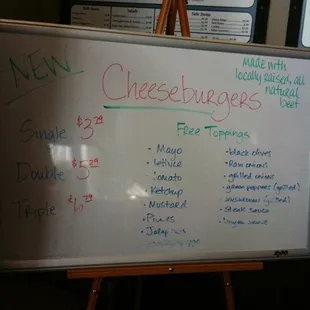 NEW
Made with
locally raised, all
natural
beef
Cheeseburgers
Single $3.29
Double $5.29
Triple
Free Toppings
• Mayo
• lettuce
• Tomato
• Ketchup
• Mustard
• Pickles
• black olives
• Raw onions
• grilled onions
• green peppers (grilled)
• mushrooms (grilled)
• Steak sauce